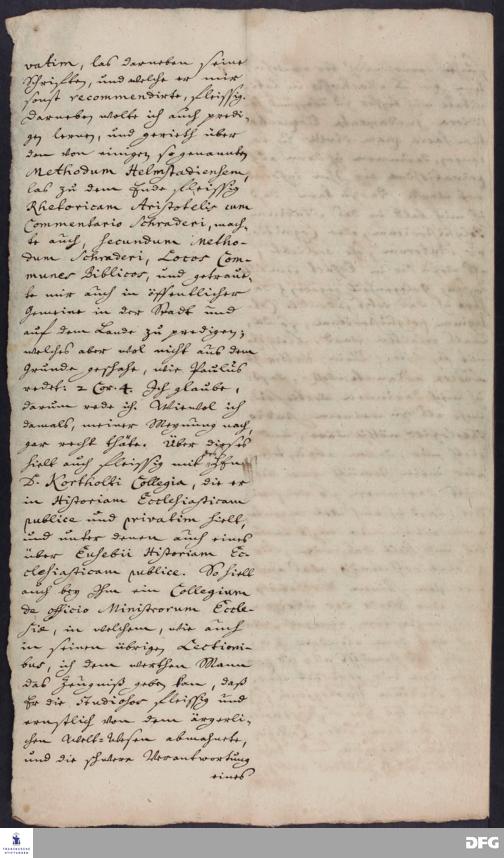 vatim, las darneben seine
Schriften, und welche er mir
sonst recommendirte, fleissig.
Darneben wolte ich auch predi-
gen lernen, und gerieth über
den von einigen so genannten
Methodum Helmstadiensem,
las zu dem Ende fleissig
Rhetoricam Aristotelis cum
Commentario Schraderi, mach-
te auch, secundum Metho-
dum Schraderi, Locos Com-
munes Biblicos, und getraue-
te mir auch in öffentlicher
Gemeine in der Stadt und
auf dem Lande zu predigen;
welches aber wol nicht aus dem
Grunde geschahe, wie Paulus
redet: 2 Cor. 4. Ich glaube,
darum rede ich. Wiewol ich
damals, meiner Meynung nach,
gar recht thäte. Über dieses
hielt auch fleissig mit
D. Kortholti Collegia, die er
in Historiam Ecclesiasticam
publice und privatim hielt,
und unter denen auch eines
über Eusebii Historiam Ec-
clesiasticam publice. So hielt
auch bey Ihm ein Collegium
de officio Ministrorum Eccle-
siæ, in welchem, wie auch
in seinen übrigen Lectioni-
bus, ich dem werthen Mann
das Zeugniß geben kan, daß
Er die Studiosos fleissig und
ernstlich von dem ärgerli-
chen Welt-Wesen abmahnete,
und die schwere Verantwortung
eines
FRANCKESCHE STIFTUNGEN
DFG